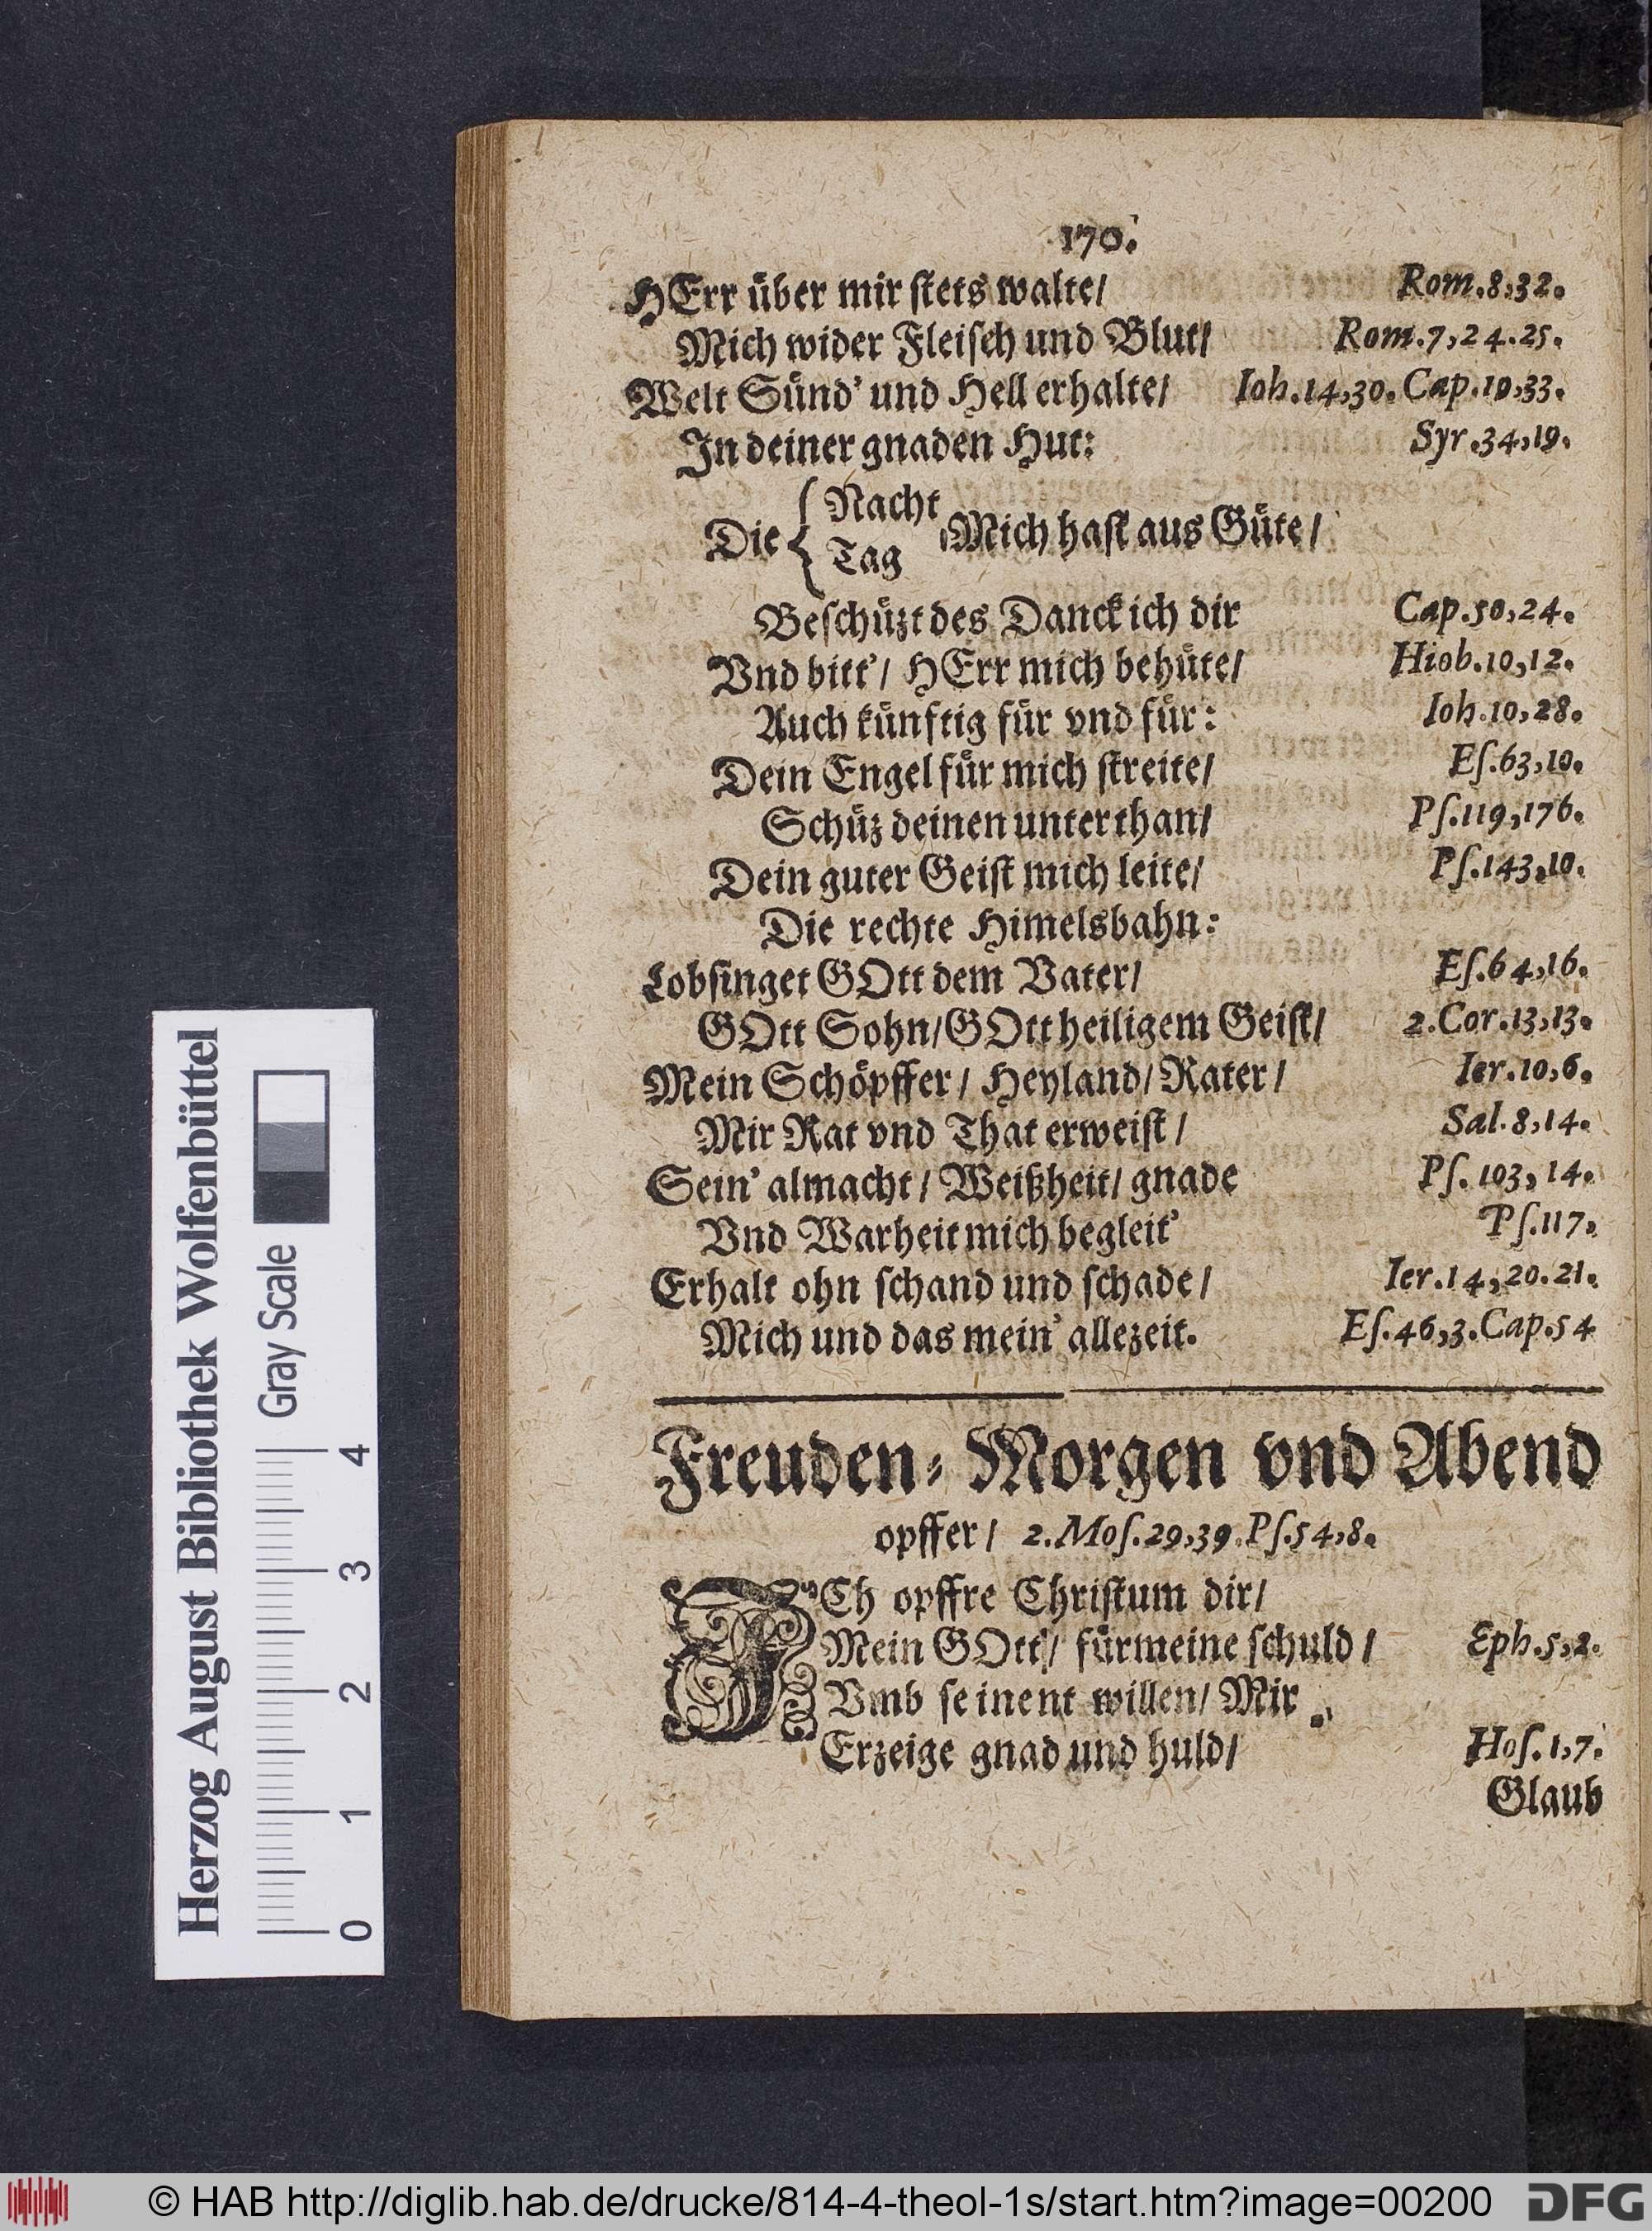 170.
HErr über mir stets walte/ Rom.8,32.
Mich wider Fleisch und Blut/ Rom.7,24.25.
Welt Sünd' und Hell erhalte/ Ioh.14,30. Cap.10,33.
In deiner gnaden Hut: Syr.34,19.
Die { Nacht
Tag Mich hast aus Güte/
Beschüzt des Danck ich dir Cap.50,24.
Vnd bitt'/ HErr mich behüte/ Hiob.10,12.
Auch künftig für vnd für: Ioh.10,28.
Dein Engel für mich streite/ Es.63,10.
Schüz deinen unterthan/ Ps.119,176.
Dein guter Geist mich leite/ Ps.143,10.
Die rechte Himelsbahn:
Lobsinget GOtt dem Vater/ Es.64,16.
GOtt Sohn/ GOtt heiligem Geist/ 2.Cor.13,13.
Mein Schöpffer/ Heyland/ Rater/ Ier.10,6.
Mir Rat vnd That erweist/ Sal.8,14.
Sein' almacht/ Weißheit/ gnade Ps.103,14.
Vnd Warheit mich begleit' Ps.117.
Erhalt ohn schand und schade/ Ier.14,20.21.
Mich und das mein' allezeit. Es.46,3.Cap.54
Freuden- Morgen vnd Abend
opffer/ 2.Mos.29,39.Ps.54,8.
ICh opffre Christum dir/
Mein GOtt/ für meine schuld/ Eph.5,2.
Vmb seinent willen/ Mir
Erzeige gnad und huld/ Hos.1,7.
Glaub
Herzog August Bibliothek Wolfenbüttel
Gray Scale
0 1 2 3 4
© HAB http://diglib.hab.de/drucke/814-4-theol-1s/start.htm?image=00200
DFG